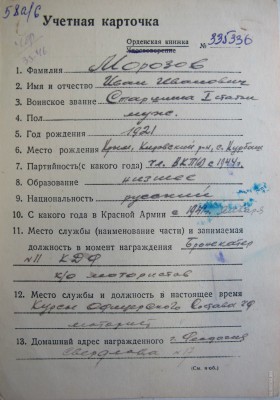 58а/6
Учетная карточка
Орденская книжка
Удостоверение
№ 335336
1. Фамилия Морозов
2. Имя и отчество Иван Иванович
3. Воинское звание Старшина I статьи
4. Пол муж.
5. Год рождения 1921
6. Место рождения Крым, Кировский р-н, с. Курбаш
7. Партийность (с какого года) чл. ВКП(б) с 1944 г.
8. Образование низшее
9. Национальность русский
10. С какого года в Красной Армии с
11. Место службы (наименование части) и занимаемая
должность в момент награждения Бронекатер
№11 КДФ
к/о мотористов
12. Место службы и должность в настоящее время
Курсы Офицерского Состава ЧФ
моторист
13. Домашний адрес награжденного г. Феодосия
Свердлова
(См. н об.)